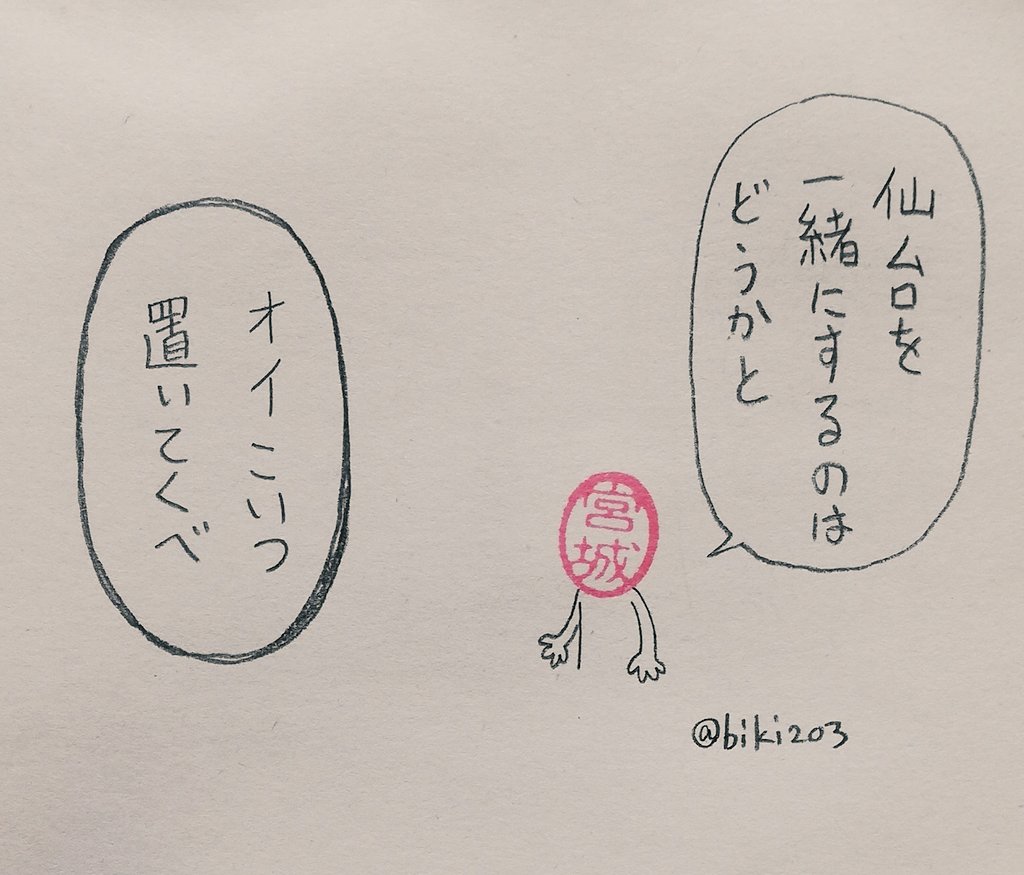 仙台を
一緒にするのは
どうかと
宮城
オイこいつ
置いてくべ
@biki203